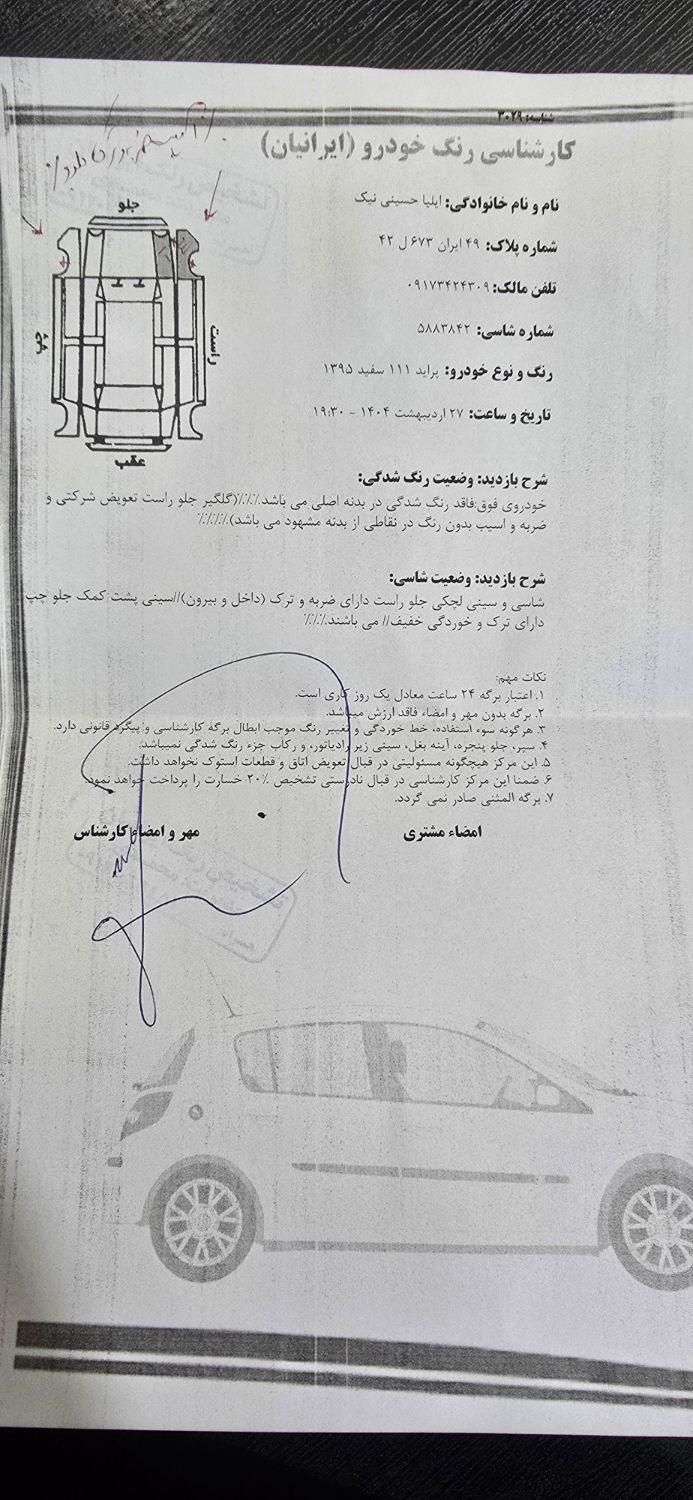 شناسه: ۳۰۲۹
کارشناسی رنگ خودرو (ایرانیان)
نام و نام خانوادگی: ایلیا حسینی نیک
شماره پلاک: ۴۹ ایران ۶۷۳ ل ۴۲
تلفن مالک: ۰۹۱۷۳۴۲۴۳۰۹
شماره شاسی: ۵۸۸۳۸۴۲
رنگ و نوع خودرو: پراید ۱۱۱ سفید ۱۳۹۵
تاریخ و ساعت: ۲۷ اردیبهشت ۱۴۰۴ - ۱۹:۳۰
جلو
راست
چپ
عقب
شرح بازدید: وضعیت رنگ شدگی:
خودروی فوق:فاقد رنگ شدگی در بدنه اصلی می باشد.٪٪٪(گلگیر جلو راست تعویض شرکتی و
ضربه و اسیب بدون رنگ در نقاطی از بدنه مشهود می باشد).٪٪٪٪
شرح بازدید: وضعیت شاسی:
شاسی و سینی لچکی جلو راست دارای ضربه و ترک (داخل و بیرون)//سینی پشت کمک جلو چپ
دارای ترک و خوردگی خفیف// می باشند.٪٪٪
نکات مهم:
۱. اعتبار برگه ۲۴ ساعت معادل یک روز کاری است.
۲. برگه بدون مهر و امضاء فاقد ارزش میباشد.
۳. هرگونه سوء استفاده، خط خوردگی و تغییر رنگ موجب ابطال برگه کارشناسی و پیگرد قانونی دارد.
۴. سپر، جلو پنجره، آینه بغل، سینی زیر رادیاتور، و رکاب جزء رنگ شدگی نمیباشد.
۵. این مرکز هیچگونه مسئولیتی در قبال تعویض اتاق و قطعات استوک نخواهد داشت.
۶. ضمنا این مرکز کارشناسی در قبال نادرستی تشخیص ۲۰٪ خسارت را پرداخت خواهد نمود.
۷. برگه المثنی صادر نمی گردد.
امضاء مشتری
مهر و امضاء کارشناس